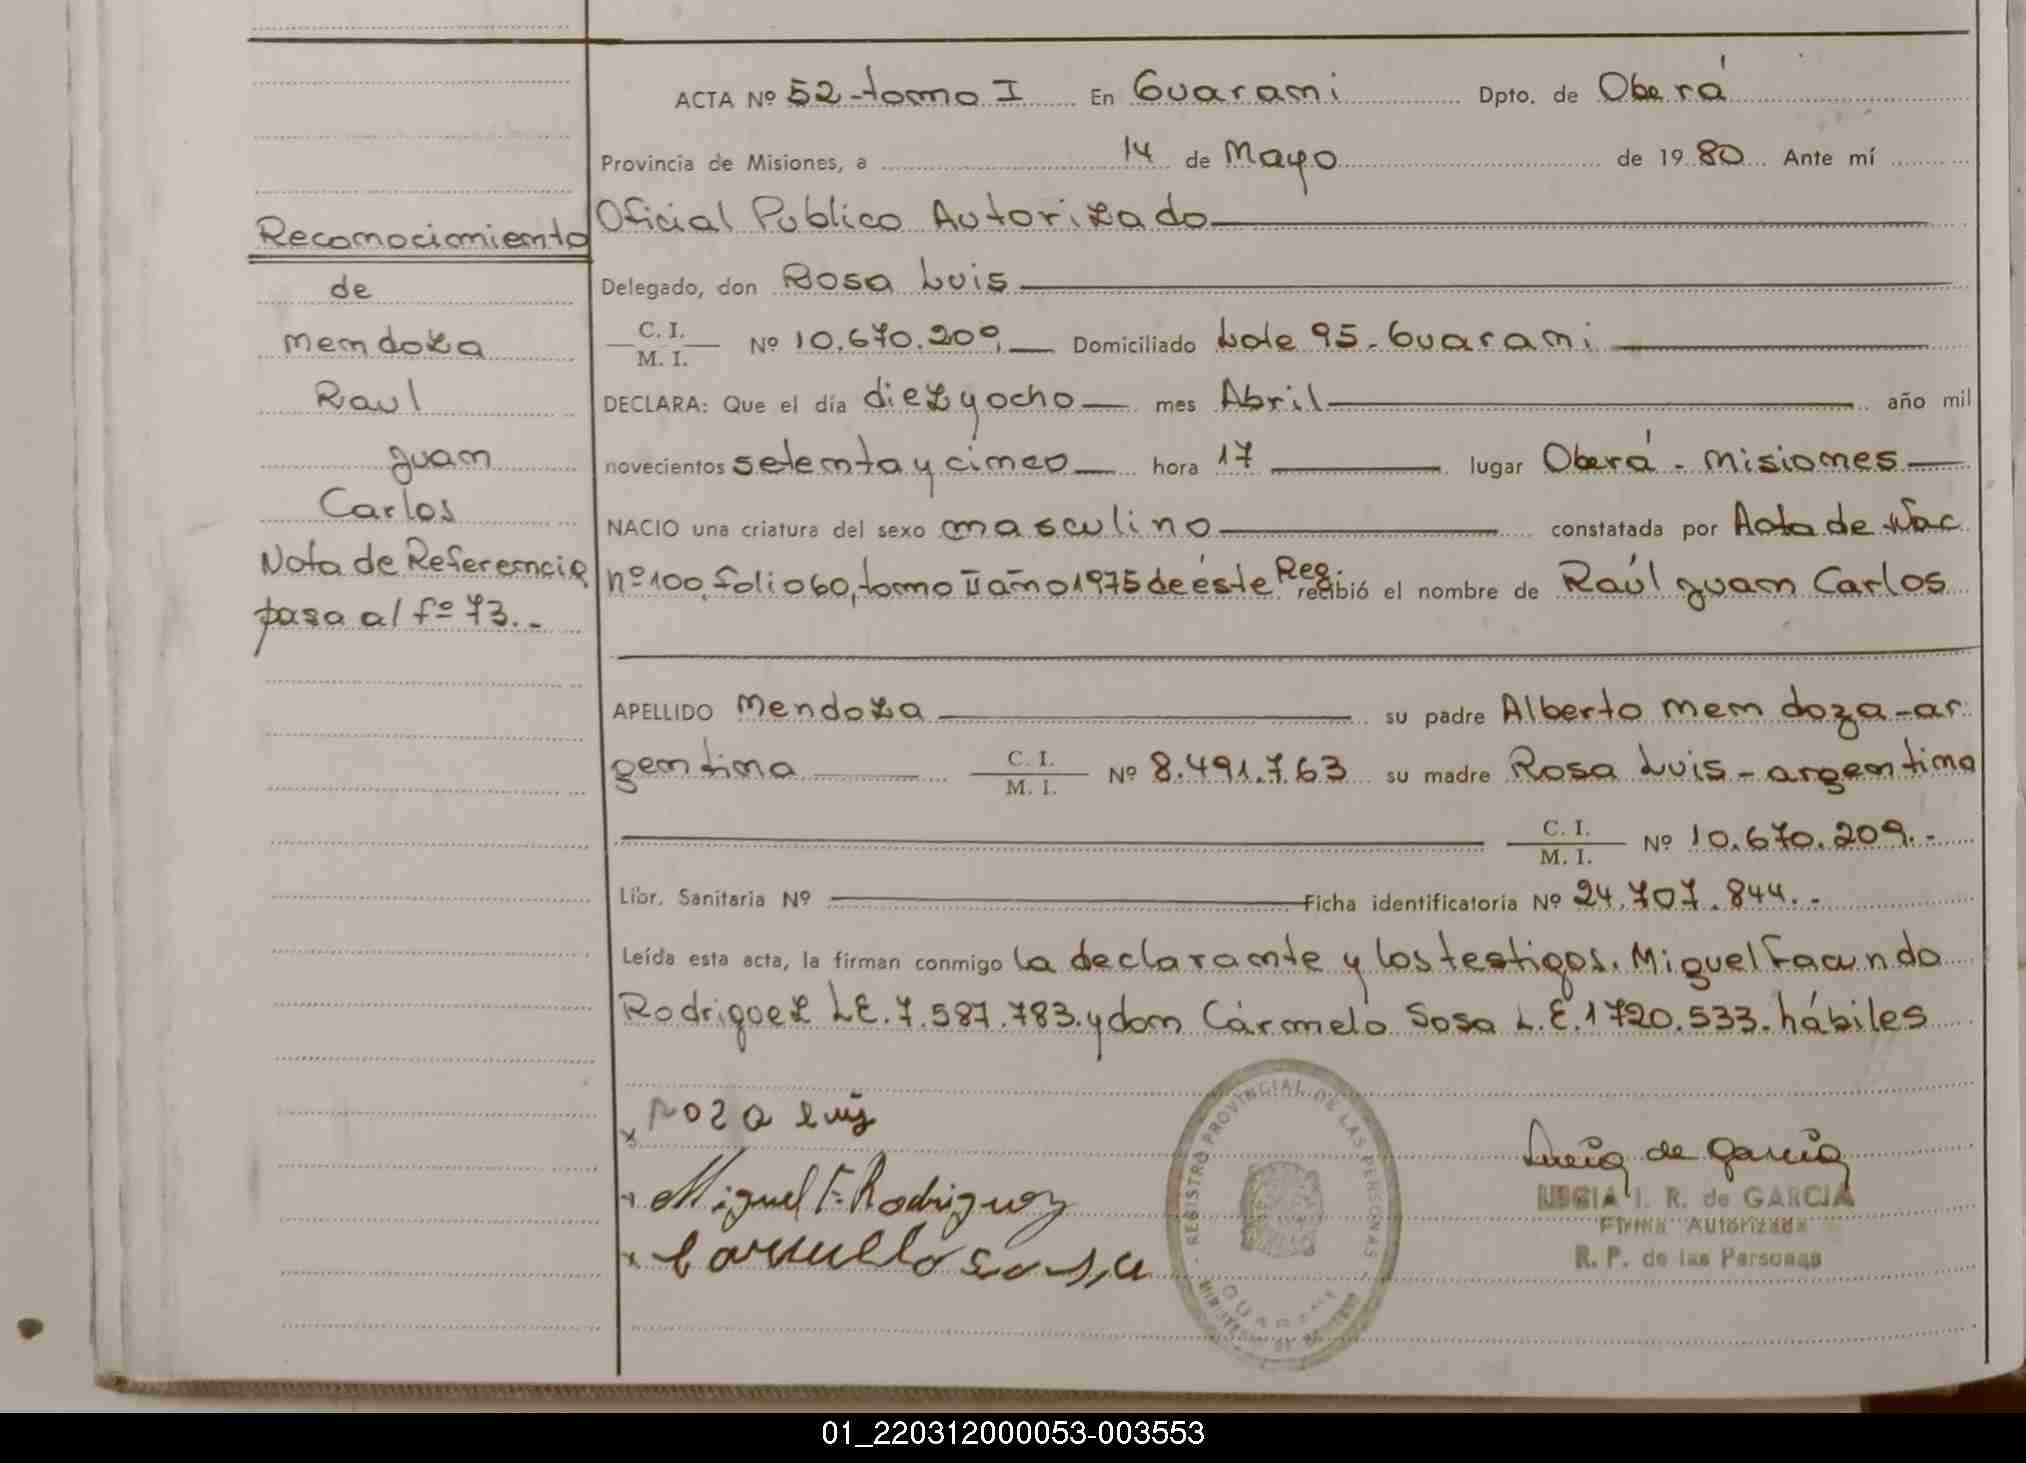 ACTA Nº 52-tomo I En Guaraní Dpto. de Oberá
Provincia de Misiones, a 14 de Mayo de 1980 Ante mí
Oficial Publico Autorizado
Delegado, don Rosa Luis
C. I. / M. I. Nº 10.670.209, Domiciliado Lote 95-Guaraní
DECLARA: Que el día diez y ocho mes Abril año mil
novecientos setenta y cinco hora 17 lugar Oberá-Misiones
NACIO una criatura del sexo masculino constatada por Acta de Nac
nº100, folio 60, tomo II año 1975 de éste Reg. recibió el nombre de Raúl Juan Carlos
APELLIDO Mendoza su padre Alberto Mendoza-ar
gentina C. I. / M. I. Nº 8.491.763 su madre Rosa Luis-argentina
C. I. / M. I. Nº 10.670.209.-
Libr. Sanitaria Nº Ficha identificatoria Nº 24.707.844.-
Leída esta acta, la firman conmigo la declarante y los testigos. Miguel Facundo
Rodriguez L.E. 7.587.783. y don Cármelo Sosa L.E. 1720.533. hábiles
Reconocimiento
de
Mendoza
Raul
Juan
Carlos
Nota de Referencia
pasa al fº 73.-
x Rosa Luis
x Miguel F. Rodriguez
x Carmelo Sosa
REGISTRO PROVINCIAL DE LAS PERSONAS
Lucia de Garcia
LUCIA I. R. de GARCIA
Firma Autorizada
R. P. de las Personas
01_220312000053-003553